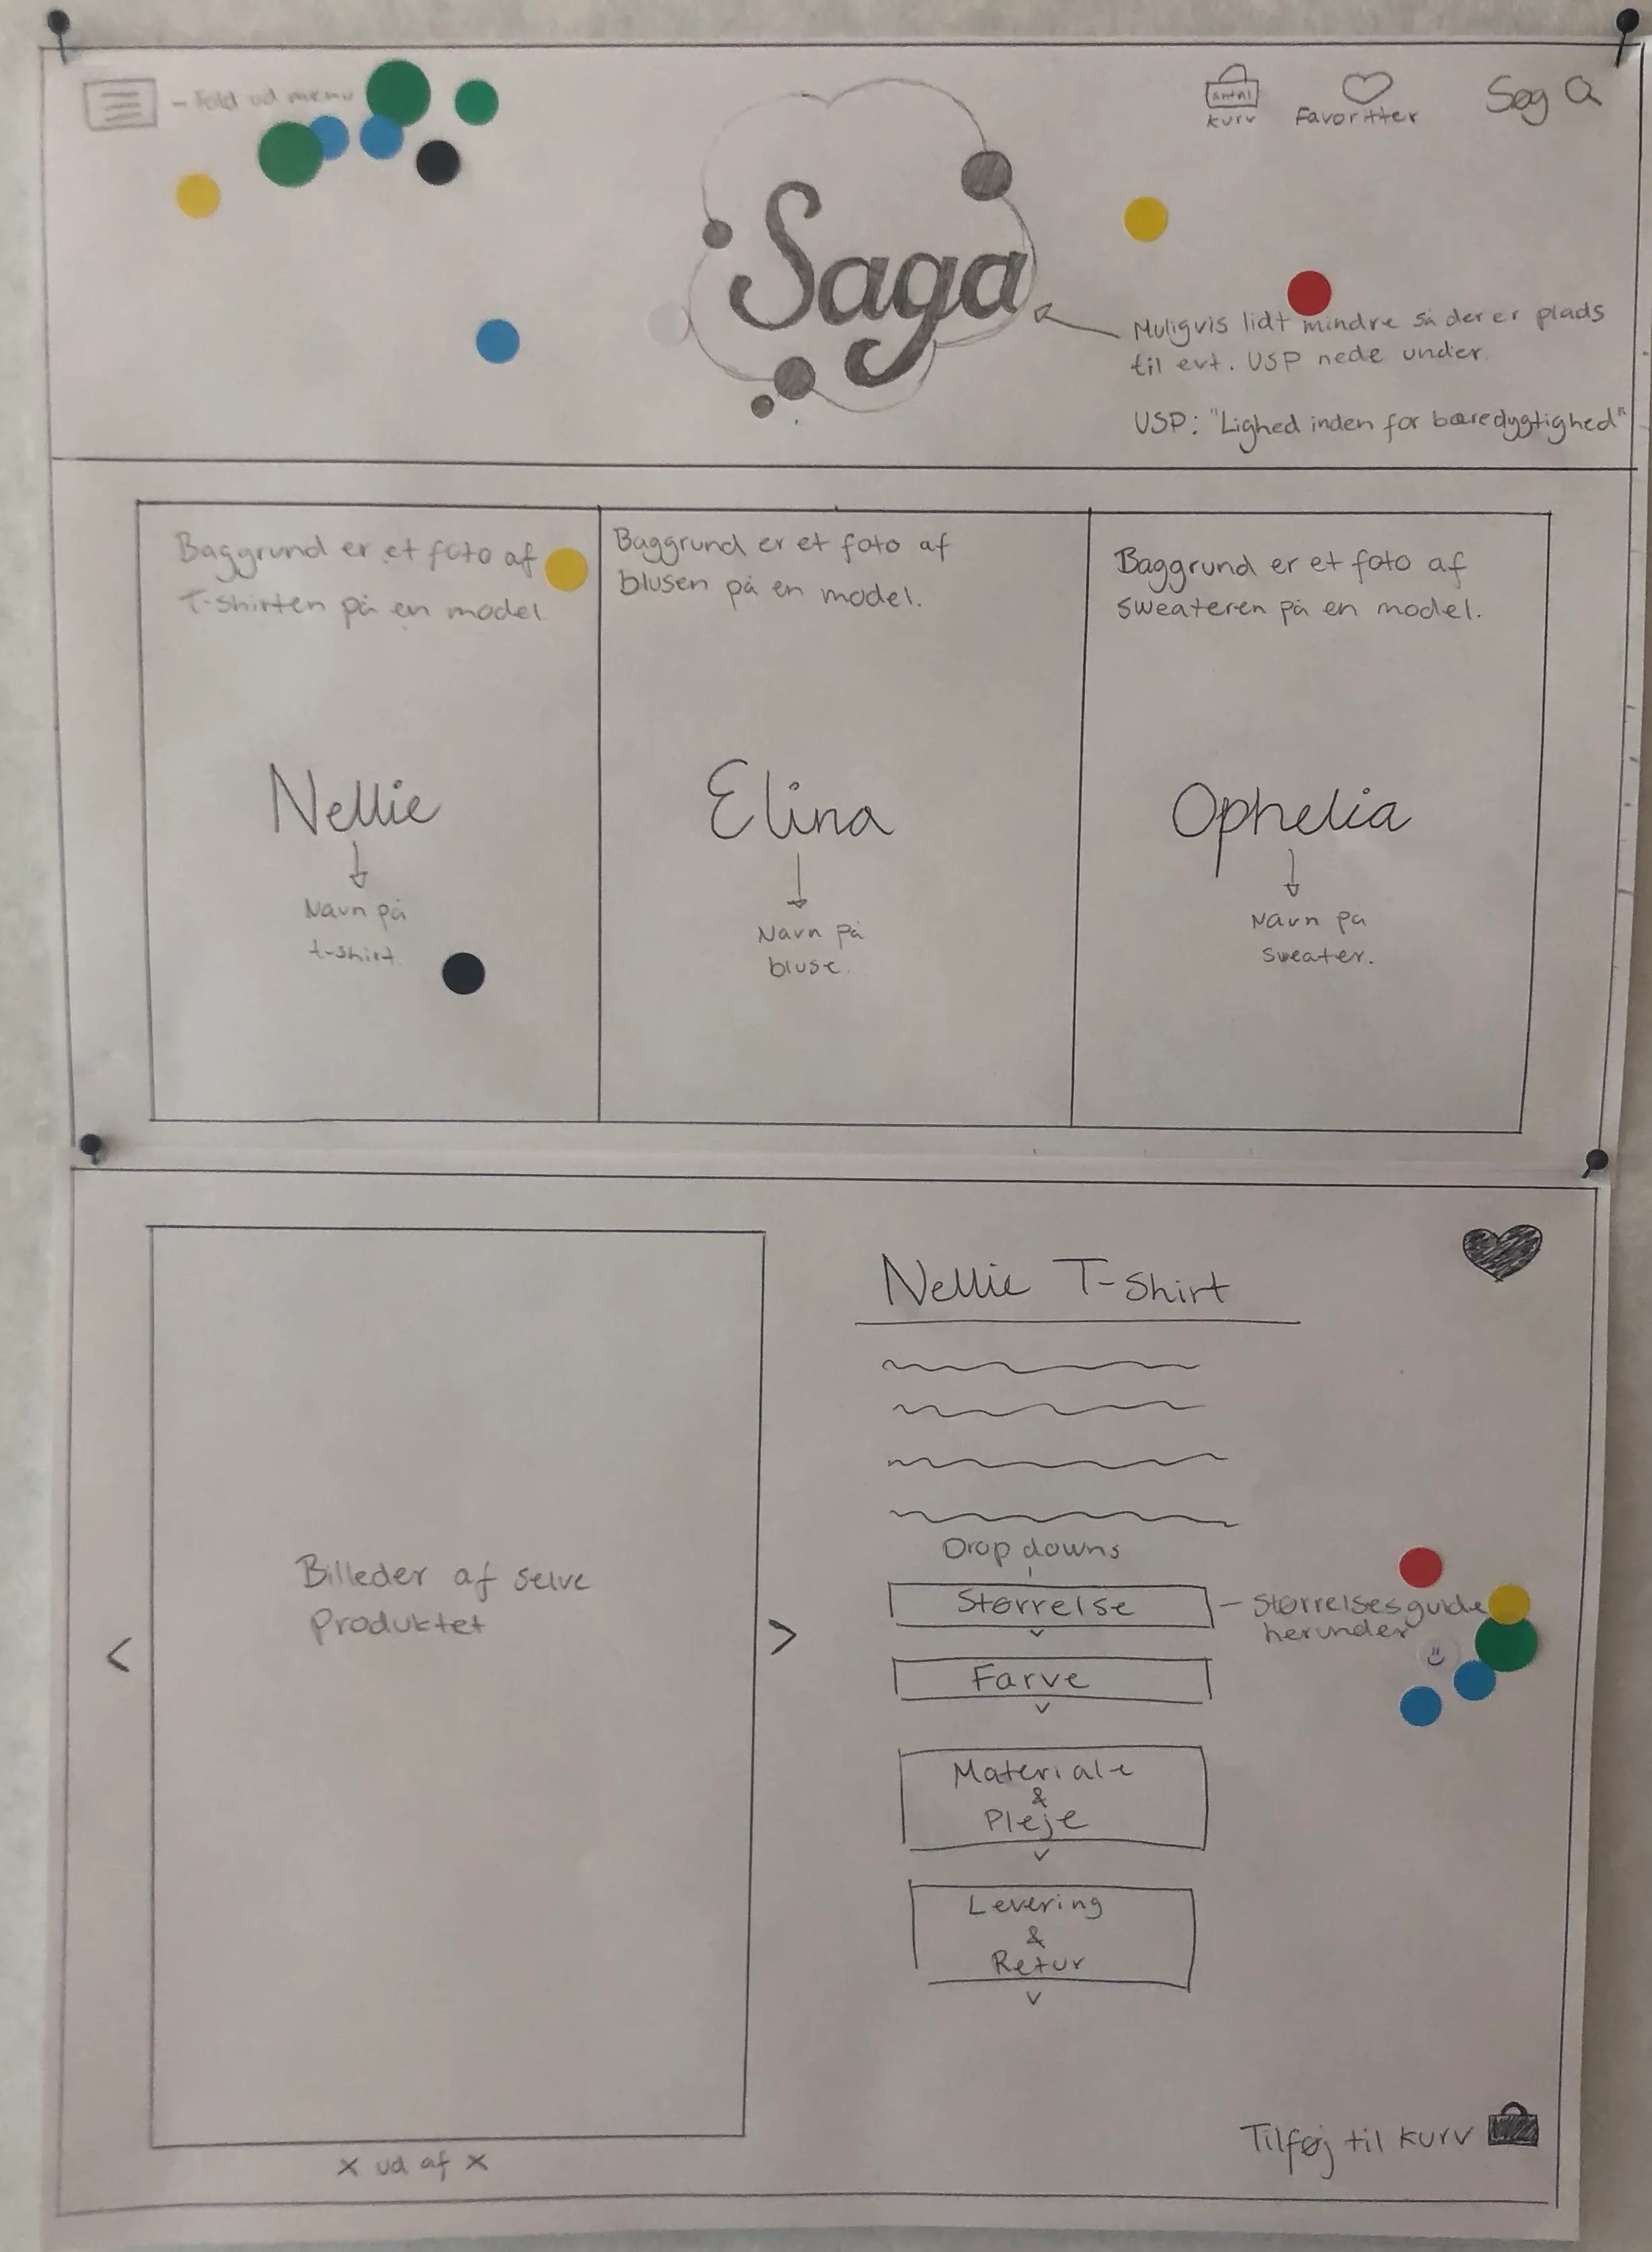 - Fold ud menu
Antal
kurv
Favoritter
Søg
Saga
Muligvis lidt mindre så der er plads
til evt. USP nede under.
USP: "Lighed inden for bæredygtighed"
Baggrund er et foto af
T-shirten på en model
Nellie
Navn på
t-shirt
Baggrund er et foto af
blusen på en model.
Elina
Navn på
bluse.
Baggrund er et foto af
sweateren på en model.
Ophelia
Navn på
sweater.
Billeder af selve
Produktet
<
>
x ud af x
Nellie T-Shirt
Drop downs
Størrelse
- Størrelsesguide
herunder
Farve
Materiale
&
Pleje
Levering
&
Retur
Tilføj til kurv